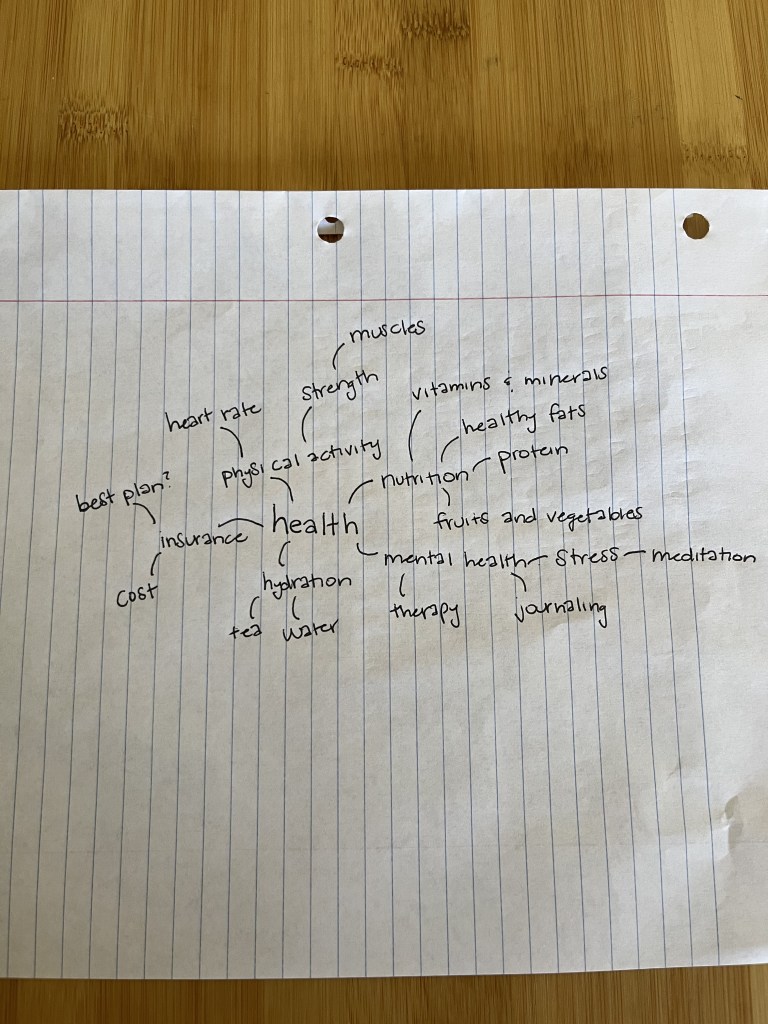 muscles
strength
vitamins & minerals
heart rate
healthy fats
physical activity
protein
nutrition
best plan?
fruits and vegetables
health
insurance
mental health
stress
meditation
cost
hydration
therapy
journaling
tea
water